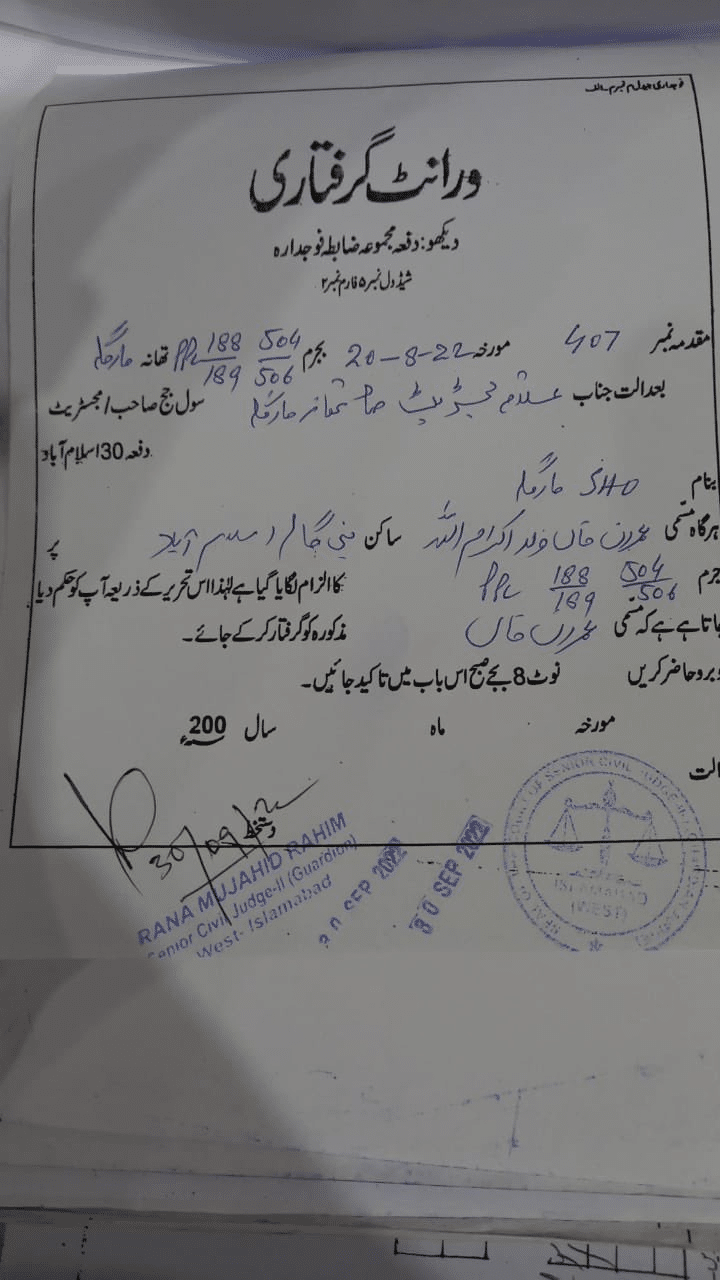 وارنٹ گرفتاری
دیکھو: دفعہ مجموعہ ضابطہ فوجدارہ
شیڈول نمبر ۵ فارم نمبر ۲
مقدمہ نمبر 407 مورخہ 20-8-22 بجرم 504/506 188/189 PPC تھانہ مارگلہ
بعدالت جناب علاقہ مجسٹریٹ صاحب تھانہ مارگلہ سول جج صاحب/مجسٹریٹ
دفعہ 30 اسلام آباد
بنام SHO مارگلہ
ہرگاہ مسمی عمران خان ولد اکرام اللہ ساکن بنی گالہ اسلام آباد پر
جرم 504/506 188/189 PPC کا الزام لگایا گیا ہے لہٰذا اس تحریر کے ذریعہ آپ کو حکم دیا
جاتا ہے ہے کہ مسمی عمران خان مذکورہ کو گرفتار کر کے جائے۔
وبرو حاضر کریں نوٹ 8 بجے صبح اس باب میں تاکید جائیں۔
مورخہ ماہ سال 200ء
الت
دستخط
30/09/22
RANA MUJAHID RAHIM
Senior Civil Judge-II (Guardian)
West- Islamabad
30 SEP 2022
30 SEP 2022
SEAL OF THE COURT OF SENIOR CIVIL JUDGE
ISLAMABAD
(WEST)